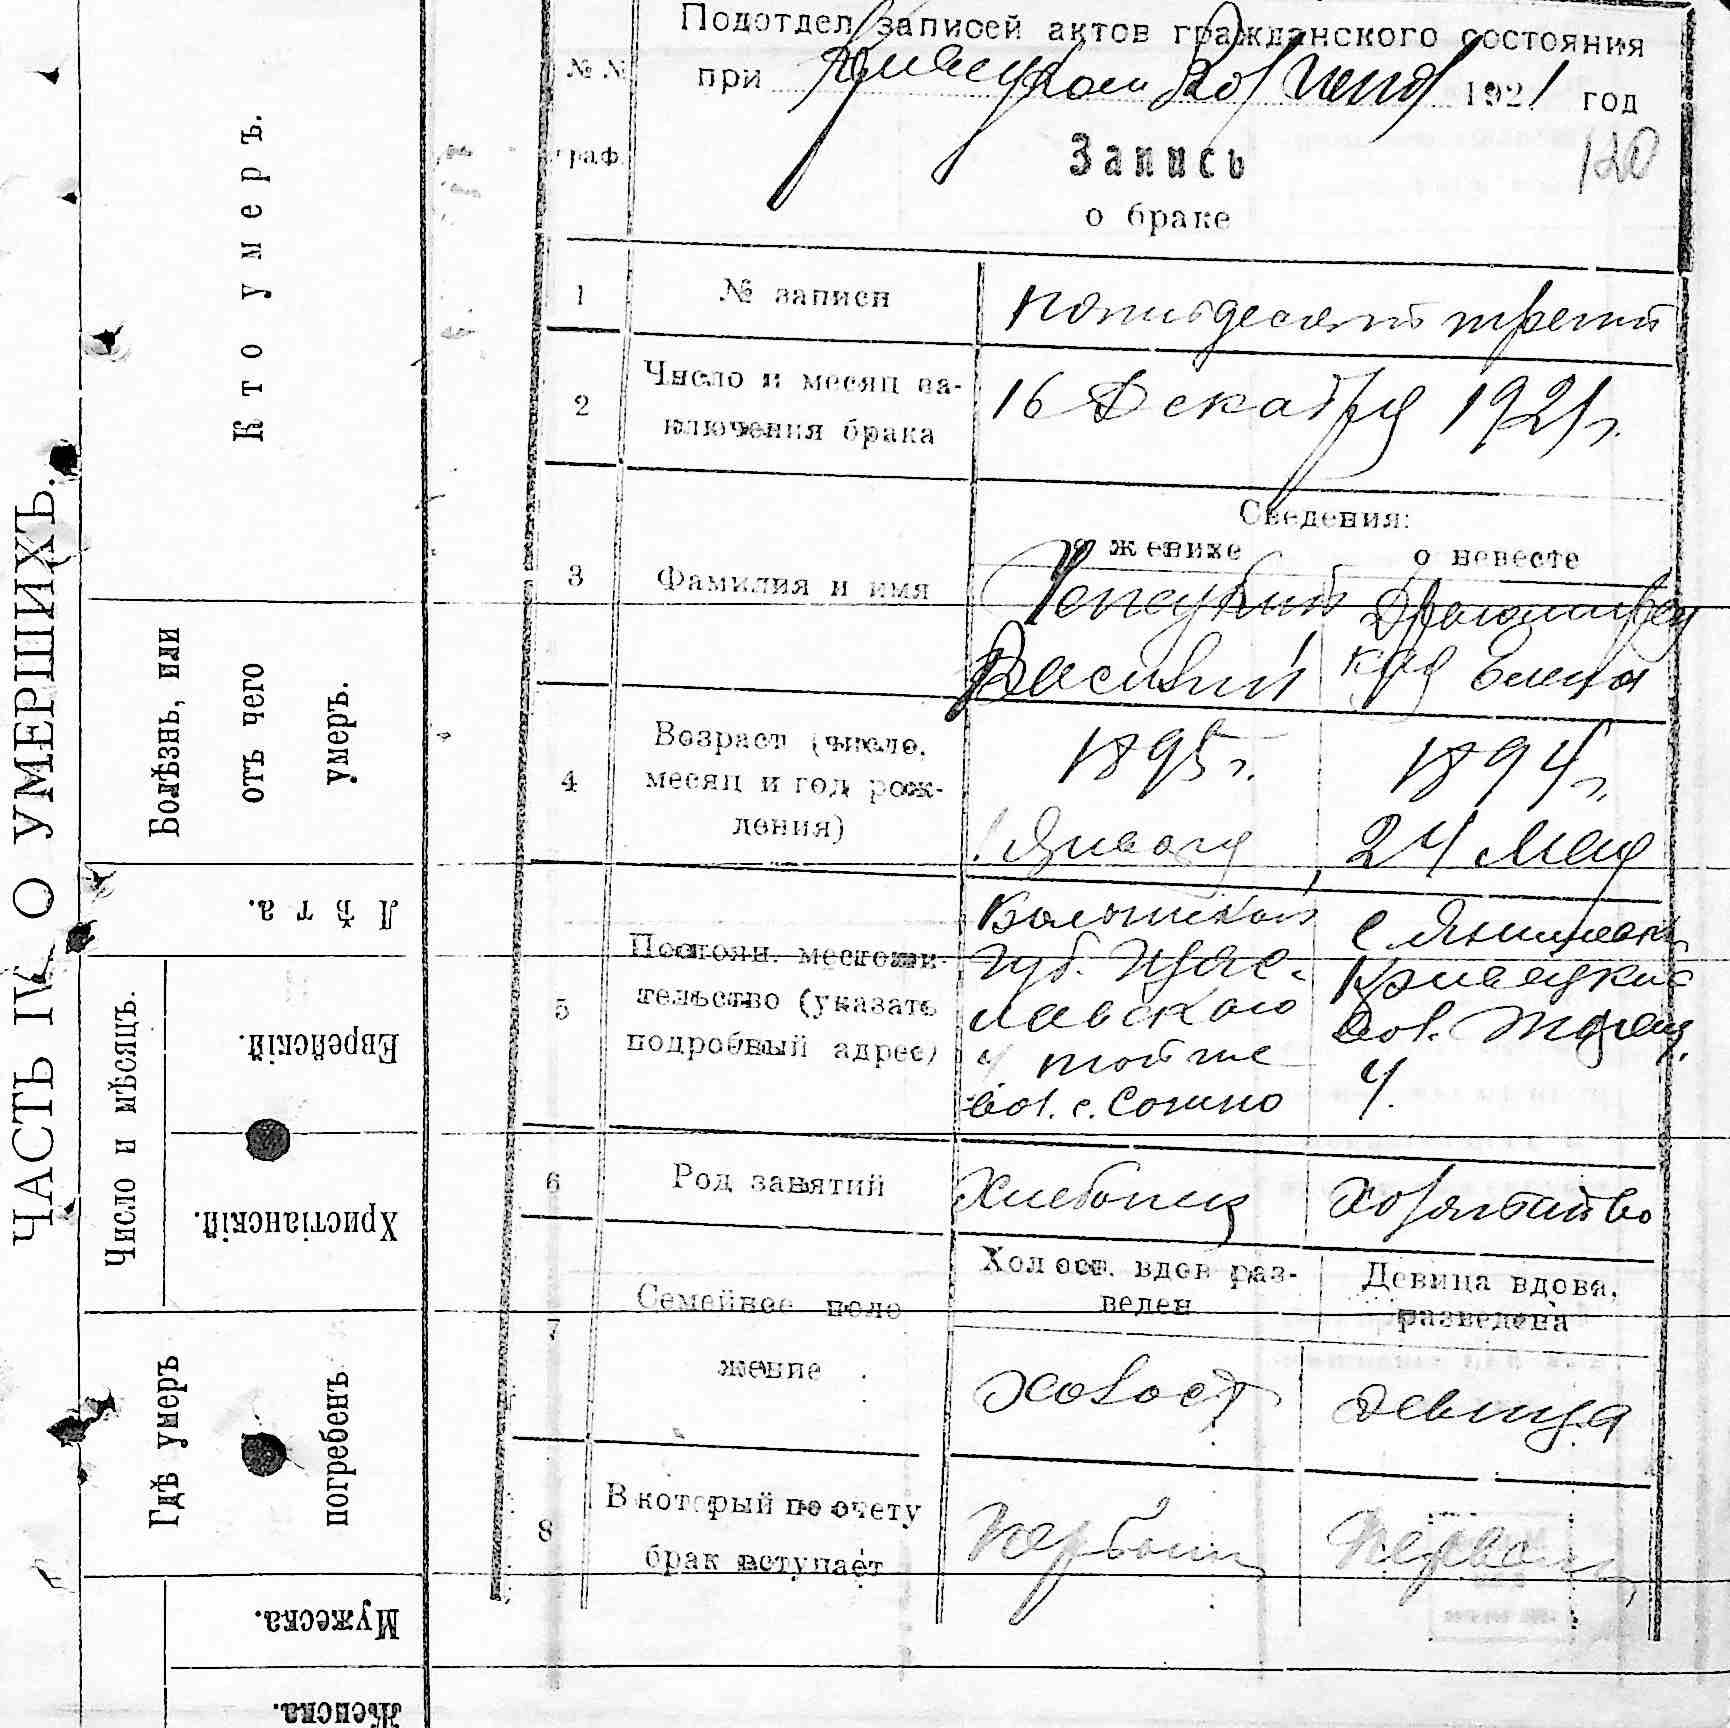 Подотдел записей актов гражданского состояния
при 1921 год
№ №
граф.
Запись
120
о браке
1 № записи пятьдесят третий
2 Число и месяц за-
ключения брака
16 Декабря 1921 г.
Сведения:
о женихе о невесте
3 Фамилия и имя
Василий кая Елена
4 Возраст (число,
месяц и год рож-
дения)
1895 г. 1894 г.
1 Января 24 Мая
5 Постоян. местожи-
тельство (указать
подробный адрес)
Волынской
губ. Изяс-
лавского
у. той же
вол. с. Сошно
с.
Кривецкой
вол.
у.
6 Род занятий Хлебопаш Хозяйство
7 Семейное поло
жение
Холост. вдов раз-
веден
Девица вдова,
разведена
холост девица
8 В который по счету
брак вступает
Первый Первый
ЧАСТЬ IV. О УМЕРШИХЪ.
Кто умеръ.
Болѣзнь, или
отъ чего
умеръ.
Лѣта.
Число и мѣсяцъ.
Еврейскій.
Христіанскій.
Гдѣ умеръ
погребенъ
Мужеска.
Женска.